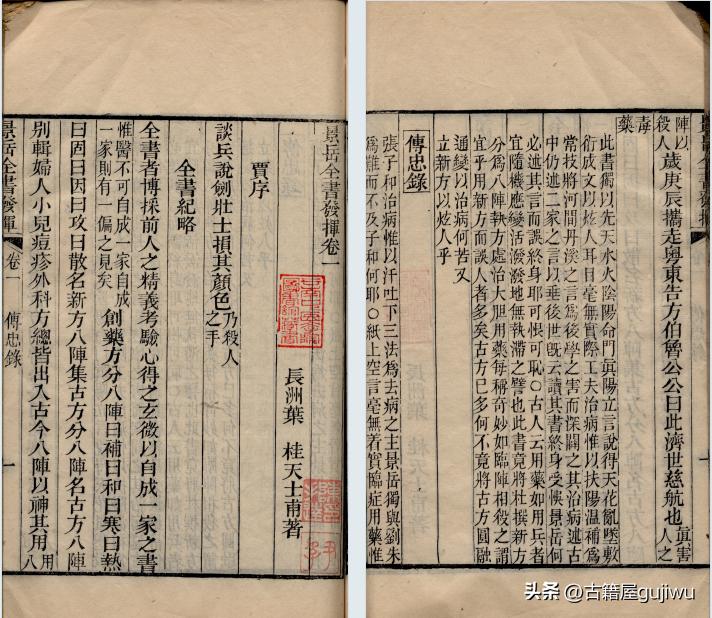 景岳全書發揮卷一
長洲葉 桂天士甫著
賈序
談兵說劍壯士損其顏色乃殺人之手
全書紀略
全書者博採前人之精義考驗心得之玄微以自成一家之書
惟醫不可自成一家自成一家則有一偏之見矣 創藥方分八陣曰補曰和曰寒曰熱
曰固曰因曰攻曰散名新方八陣集古方分八陣名古方八陣
別輯婦人小兒痘疹外科方總皆出入古今八陣以神其用用八
景岳全書發揮 卷一 傳忠錄 一
陣以殺人歲庚辰攜走粵東告方伯魯公公曰此濟世慈航也眞害人之
毒藥
此書獨以先天水火陰陽命門眞陽立言說得天花亂墜敷
衍成文以炫人耳目毫無實際工夫治病惟以扶陽溫補爲
常技將河間丹溪之言爲後學之害而深闢之其治病述古
中仍述二家之言以垂後世旣云讀其書終身受悞景岳何
必述其言而誤終身耶可恨可恥○古人云用藥如用兵者
宜隨機應變活潑潑地無執滯之譬也此書竟將杜撰新方
分爲八陣執方處治大胆用藥每稱奇妙如臨陣相殺之謂
宜乎用新方而談人者多矣古方巳多何不竟將古方圓融
通變以治病何苦又
立新方以炫人乎
傳忠錄
張子和治病惟以汗吐下三法爲去病之主景岳獨與劉朱
爲難而不及子和何耶○紙上空言毫無若實臨症用藥惟
头条 @古籍屋gujiwu